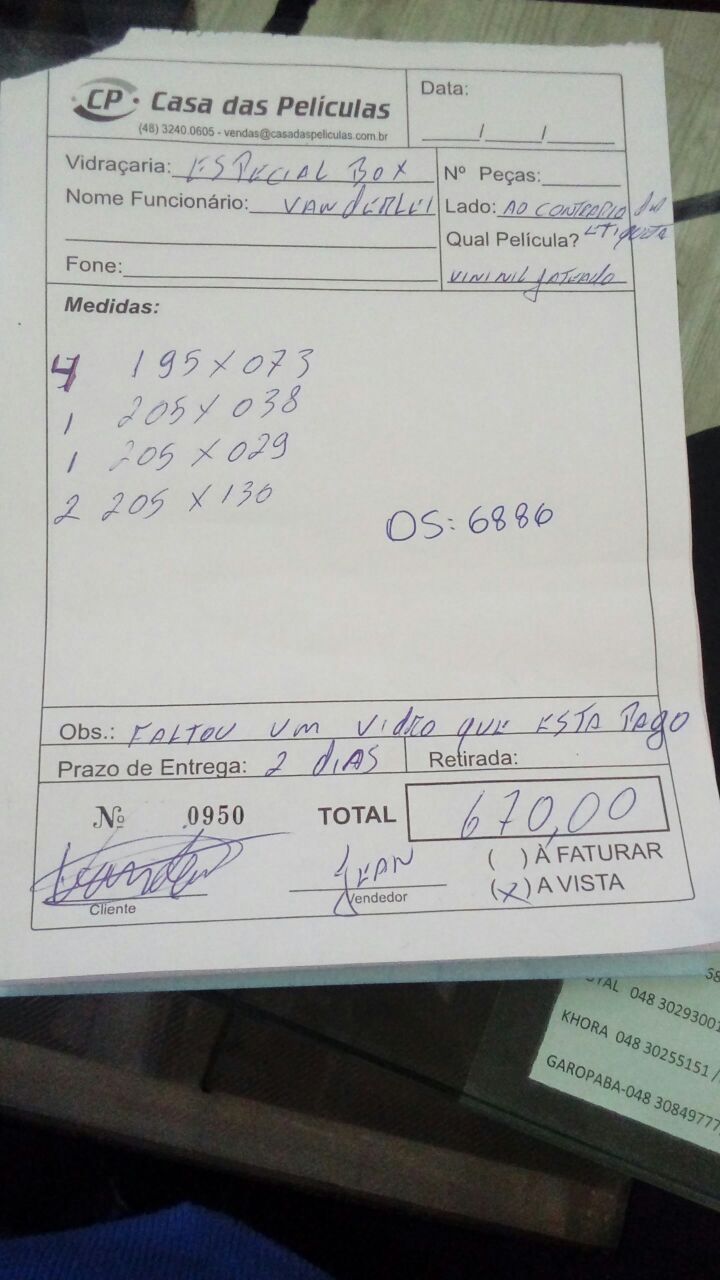 CP Casa das Películas
(48) 3240.0605 - vendas@casadaspeliculas.com.br
Data:
___/___/___
Vidraçaria: ESPECIAL BOX
Nome Funcionário: VANDERLEI
Fone:
Nº Peças:
Lado: AO CONTRARIO DA
ETIQUETA
Qual Película?
VININIL JATEADO
Medidas:
4 195 X 073
1 205 X 038
1 205 X 029
2 205 X 130
OS: 6886
Obs.: FALTOU UM VIDRO QUE ESTA PAGO
Prazo de Entrega: 2 DIAS
Retirada:
Nº 0950
TOTAL 670,00
( ) À FATURAR
(X) A VISTA
Cliente
JEAN
Vendedor
048 30293001
KHORA 048 30255151 /
GAROPABA-048 30849777